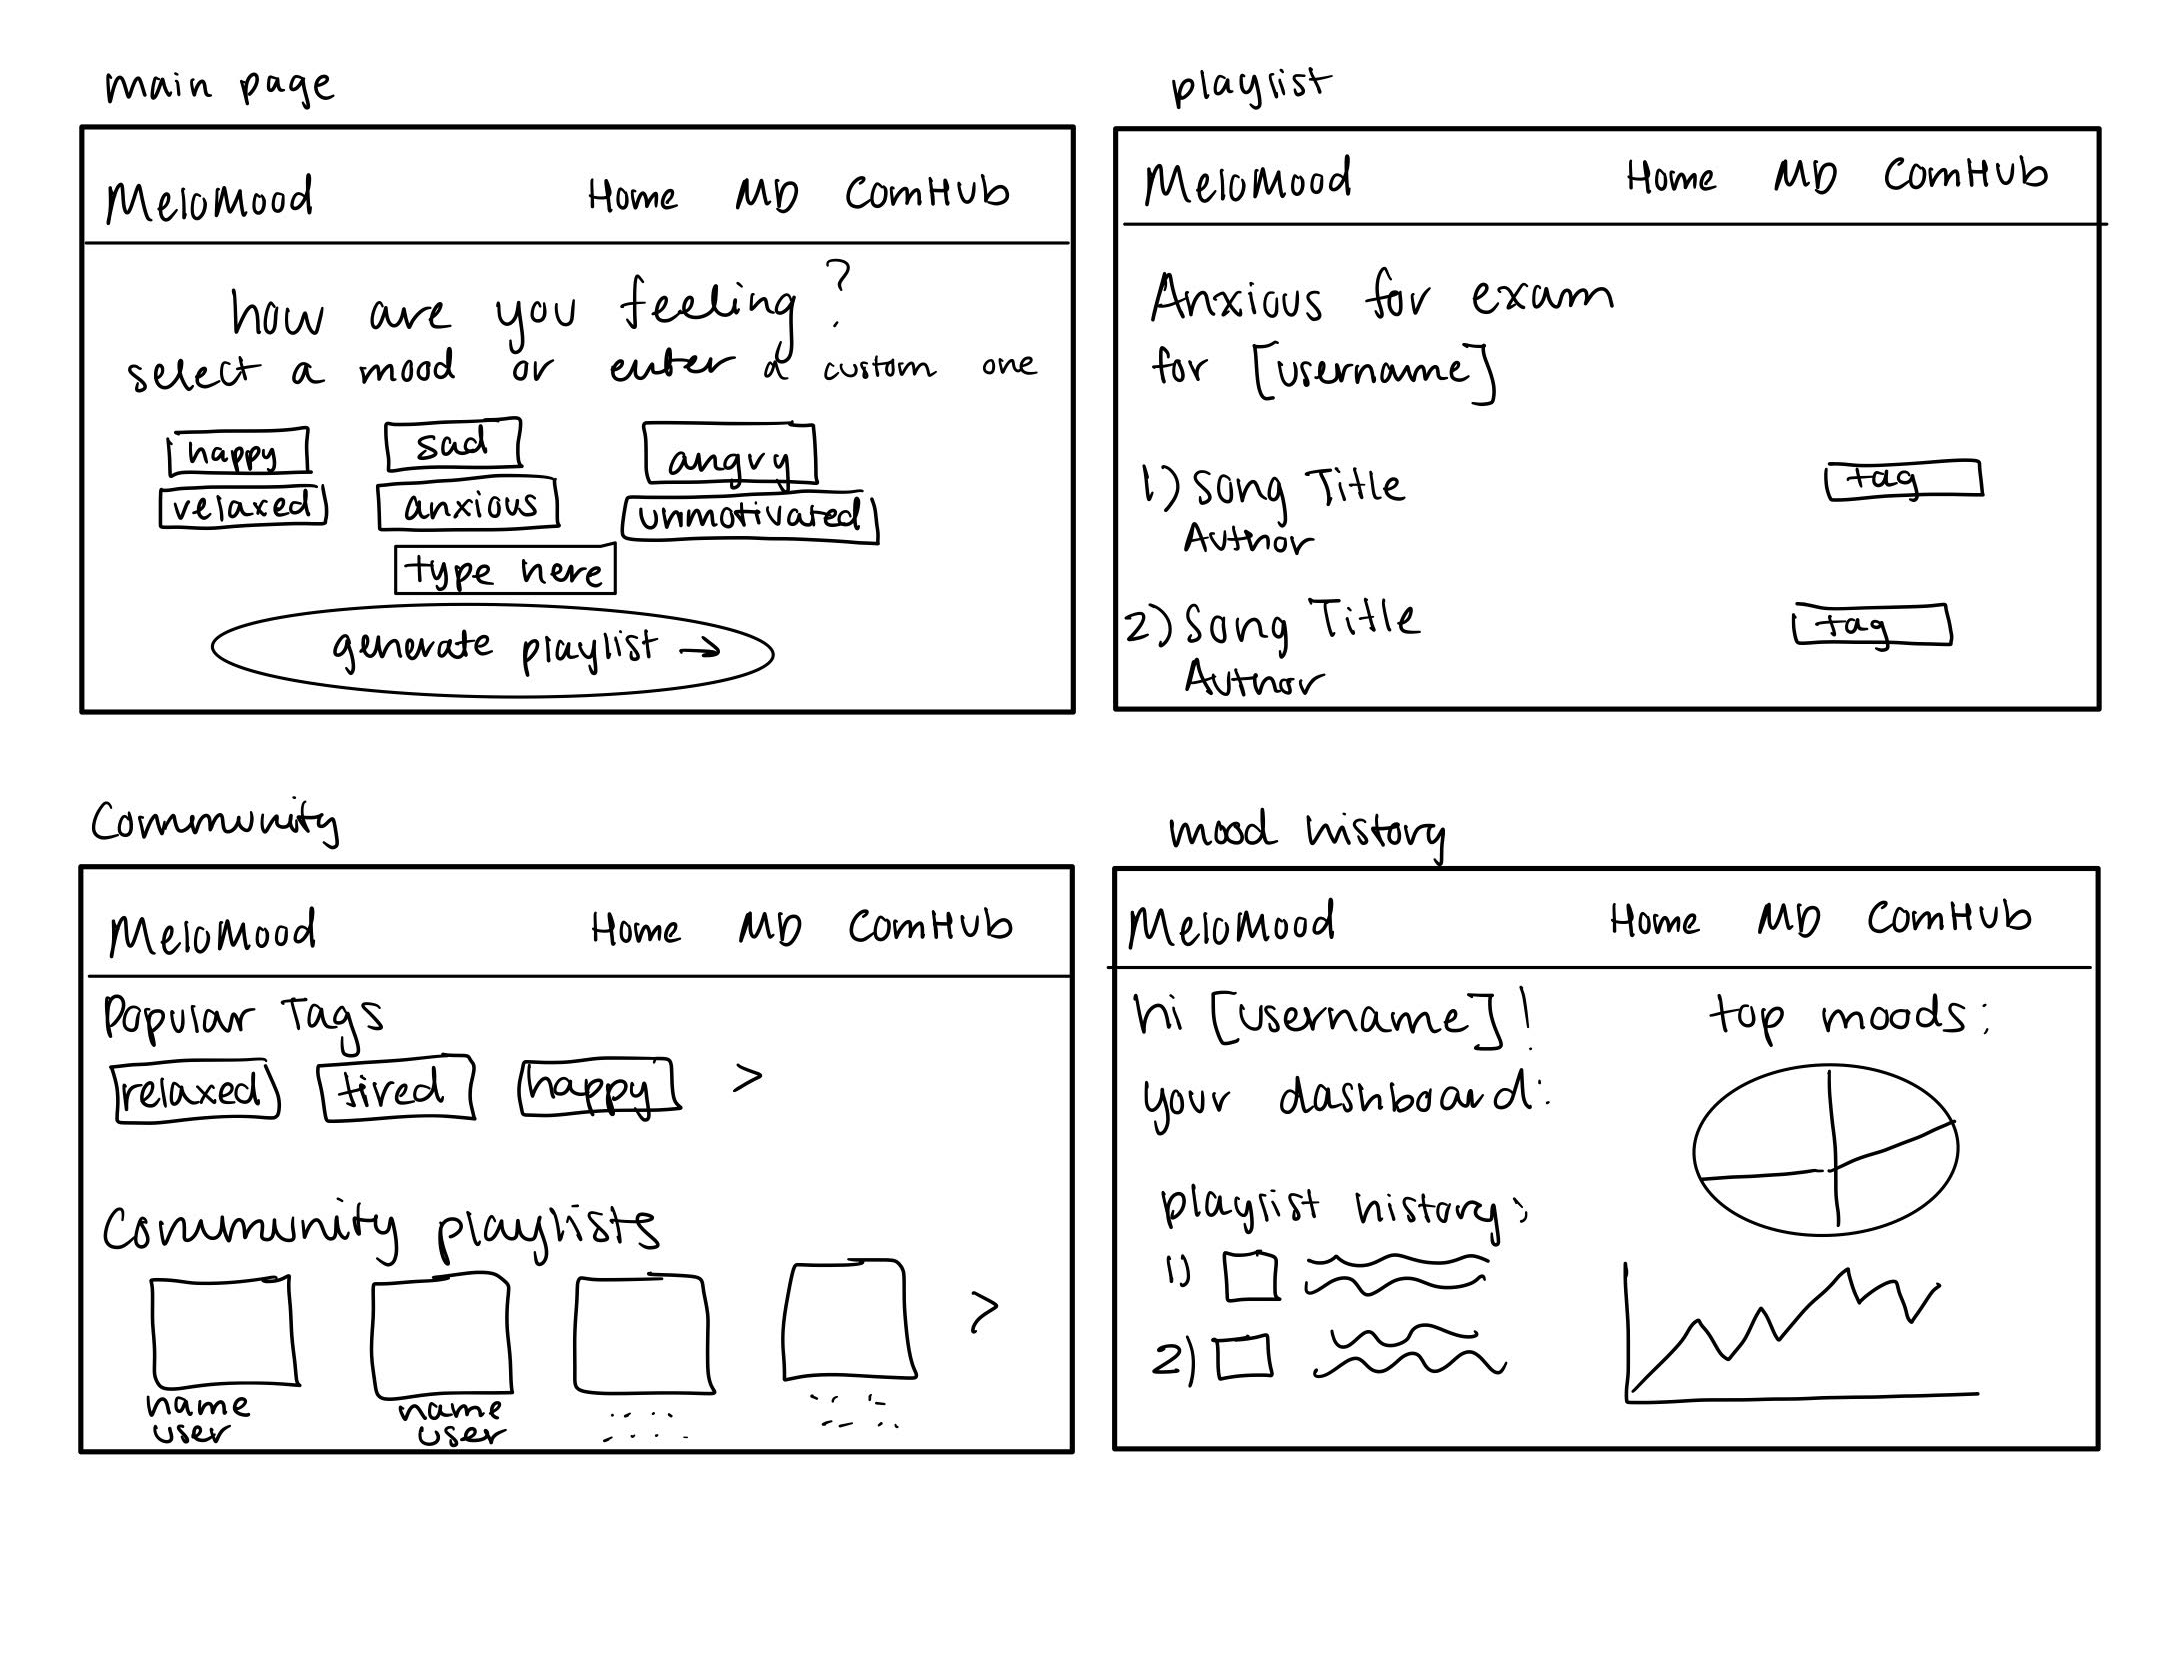 main page
MeloMood Home MD ComHub
how are you feeling?
select a mood or enter a custom one
happy sad angry
relaxed anxious unmotivated
type here
generate playlist →
playlist
MeloMood Home MD ComHub
Anxious for exam
for [username]
1) Song Title tag
Author
2) Song Title tag
Author
Community
MeloMood Home MD ComHub
Popular Tags
relaxed tired happy >
Community playlists
>
name name
user user
mood history
MeloMood Home MD ComHub
hi [username]!
your dashboard:
playlist history:
1)
2)
top moods: